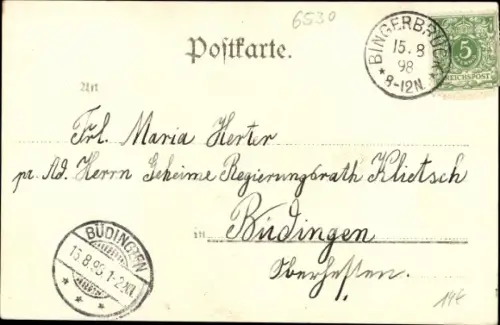 6530
Postkarte.
BINGERBRÜCK
15.8
98
* 8-12N. *
5
REICHSPOST
An
Frl. Maria Herter
pr. Ad. Herrn Geheime Regierungsrath Klietsch
in Büdingen
Oberhessen.
BÜDINGEN
15.8.98.1-2N.
14€